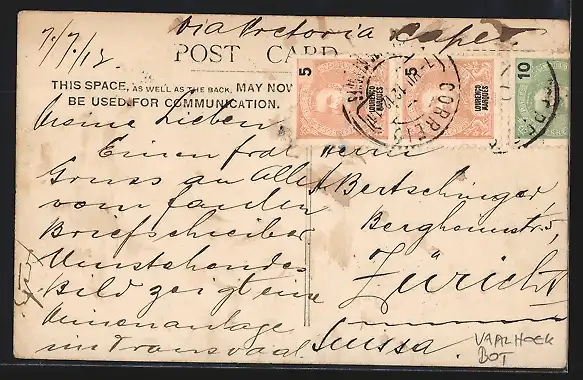 7/7/12 via Pretoria Capet
POST CARD
THIS SPACE, AS WELL AS THE BACK, MAY NOW
BE USED FOR COMMUNICATION.
Meine Lieben
Einen frdl
Gruss an Alle
vom faulen
Briefschreiber
Umstehendes
Bild zeigt eine
Minenanlage
im Transvaal.
5
LOURENÇO
MARQUES
LOURENÇO
MARQUES
10
CORREIO
Herrn
A Bertschinger,
Bergheimstr 5,
Zürich
Suissa.
VAALHOEK
BOT